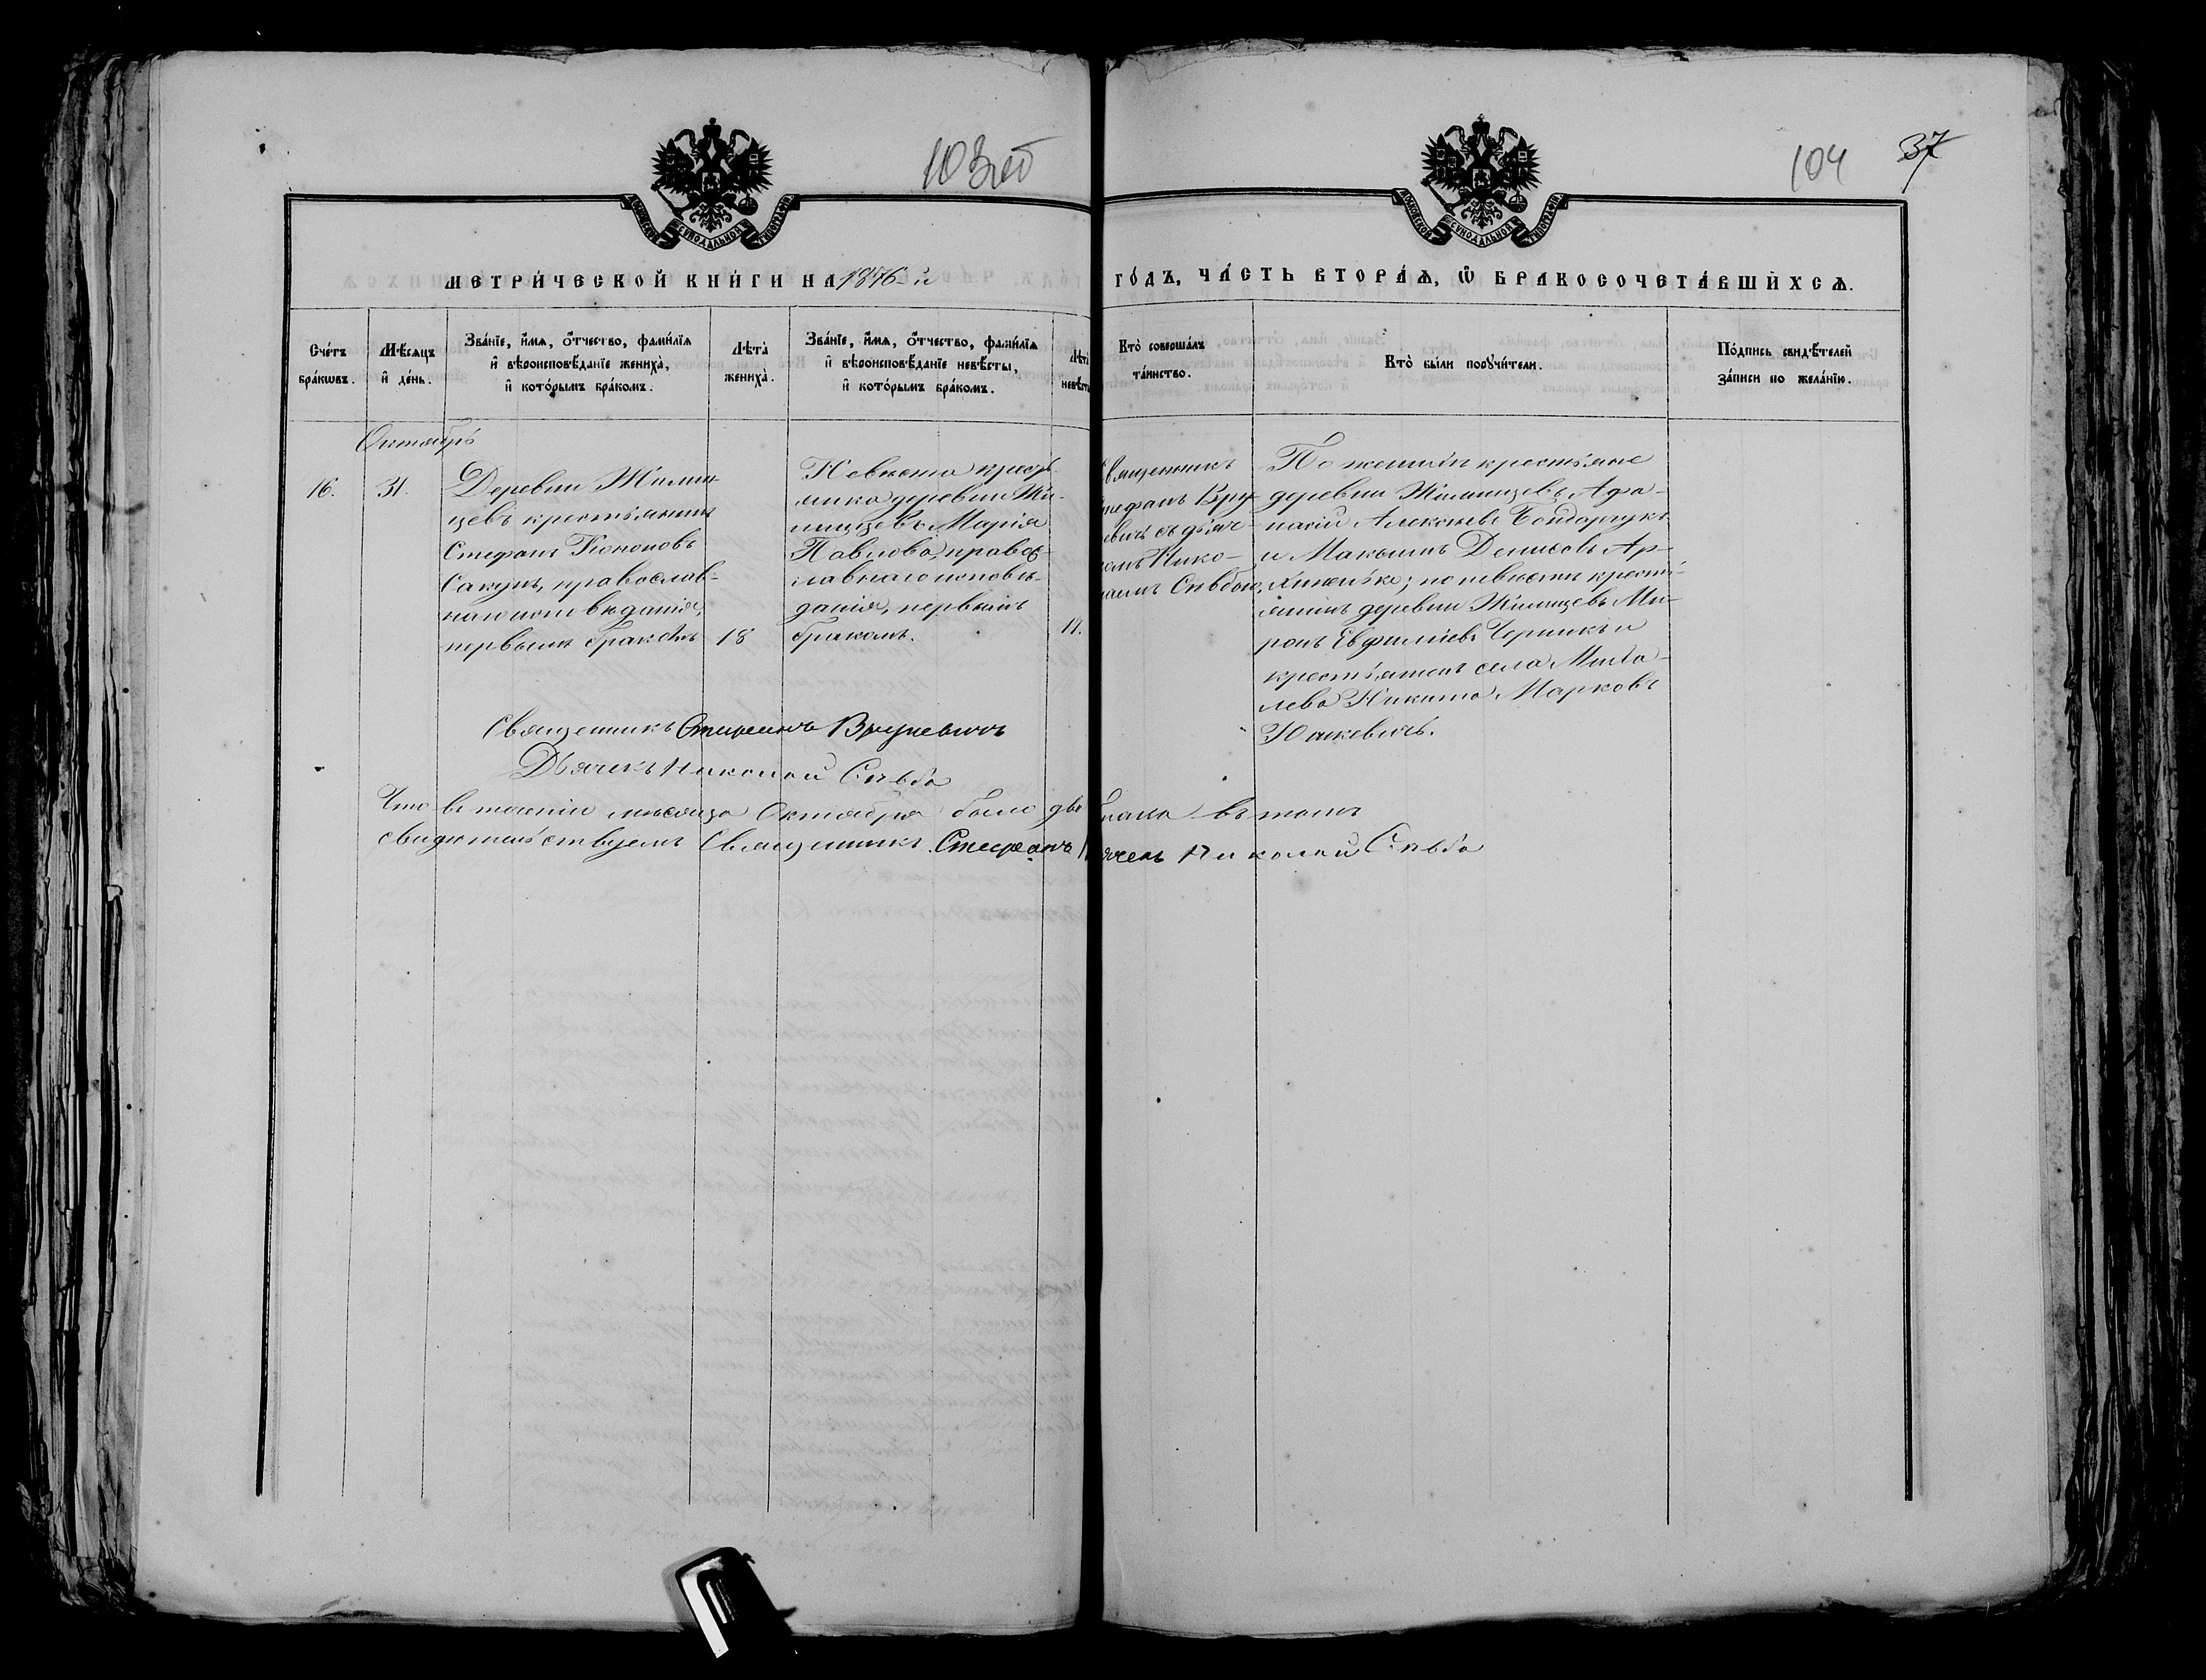 103 об
104 37
МЕТРИ́ЧЕСКОЙ КНИ́ГИ НА 1876 й
ГО́ДЪ, ЧА́СТЬ ВТОРА́Ѧ, Ѡ҆ БРАКОСОЧЕТА́ВШИХСѦ.
Сче́тъ бра́кѡвъ.
Мѣ́сѧцъ и҆ де́нь.
Зва́нїе, и҆́мѧ, ѻ҆́тчество, фамѝлїѧ и҆ вѣроисповѣ́данїе жениха̀, и҆ кото́рымъ бра́комъ.
Лѣта̀ жениха̀.
Зва́нїе, и҆́мѧ, ѻ҆́тчество, фамѝлїѧ и҆ вѣроисповѣ́данїе невѣ́сты, и҆ кото́рымъ бра́комъ.
Лѣта̀
Кто̀ соверша́лъ та́инство.
Кто̀ бы́ли порꙋчи́тели.
По́дпись свидѣ́телей за́писи по жела́нїю.
Октябрь
16.
31.
Деревни Жилин-
цевъ крестьянинъ
Стефанъ Кононовъ
Сакунъ, православ-
наго исповѣданія,
первымъ бракомъ
18
Невѣста кресть-
янка деревни Жи-
линцевъ Марія
Павлова, правос-
лавнаго исповѣ-
данія, первымъ
бракомъ.
17.
Священникъ
Стефанъ Вру-
евичъ съ дьяч-
комъ Нико-
лаемъ Сѣвбою,
По женихѣ крестьяне
деревни Жилинцевъ Афа-
насій Алексѣевъ Бондарчукъ
и Максимъ Денисовъ Ар-
; по невѣстѣ кресть-
янинъ деревни Жилинцевъ Ми-
ронъ Евфиміевъ Черникъ и
крестьянинъ села
Никита Марковъ
Юшкевичъ.
Священникъ Стефанъ Вруевичъ
Дьячекъ Николай Сѣвба
Что въ теченіи мѣсяца Октября было два брака въ томъ
свидѣтельствуемъ Священникъ Стефанъ дьячекъ Николай Сѣвба